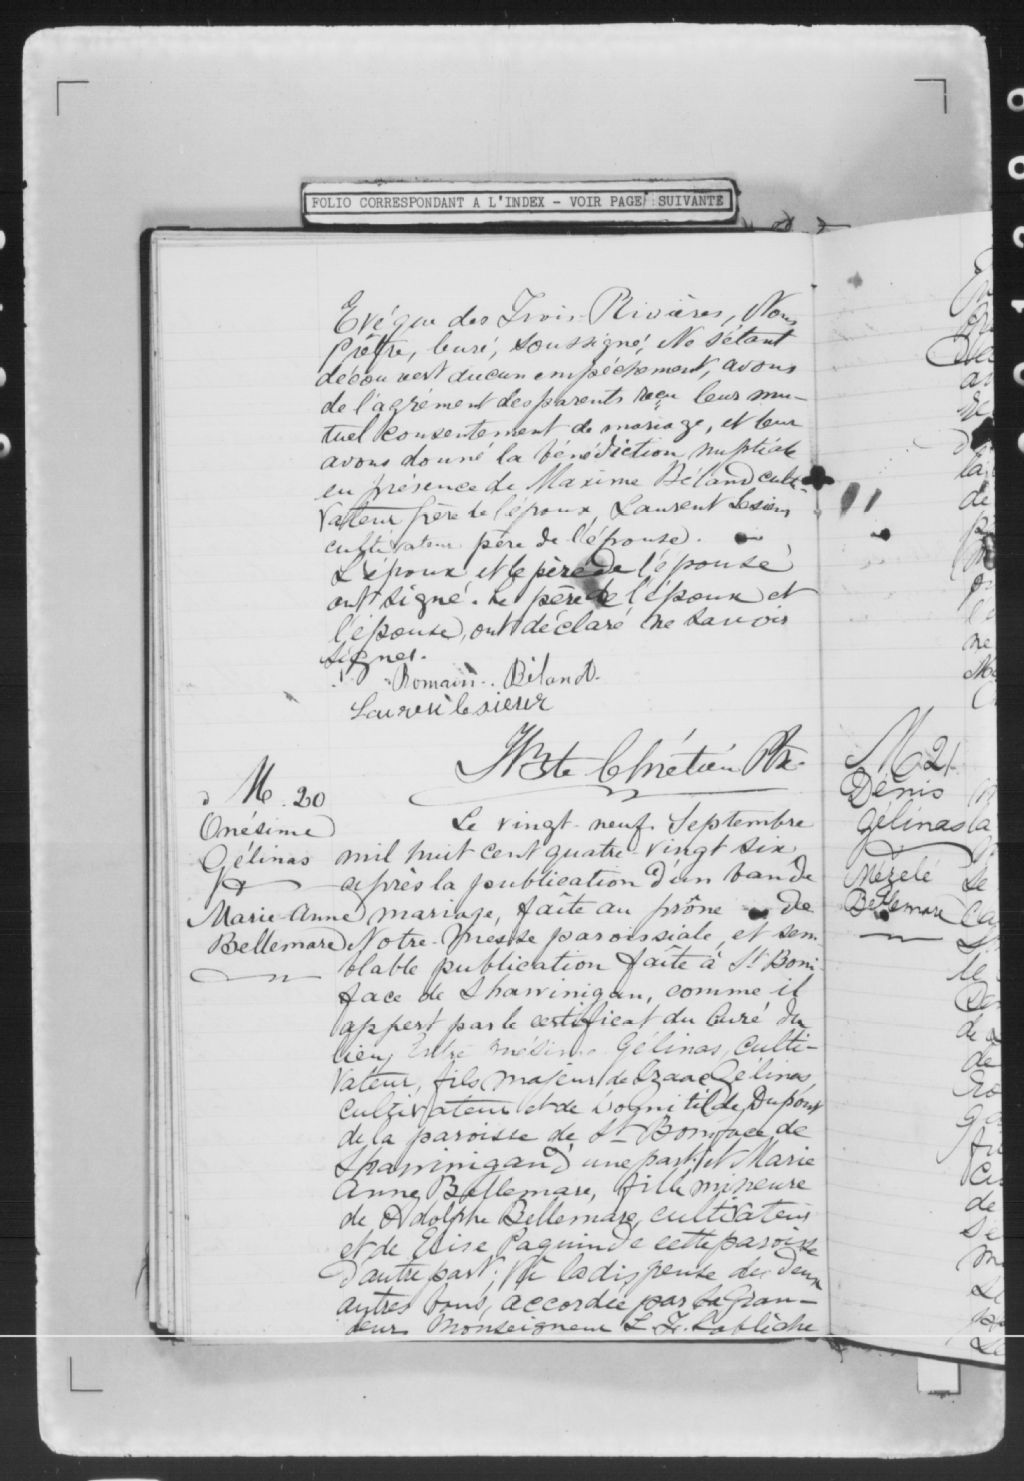 FOLIO CORRESPONDANT A L'INDEX - VOIR PAGE SUIVANTE
Evêque des Trois-Rivières, Nous
Prêtre, Curé, soussigné, Ne s'étant
découvert aucun empêchement, avons
de l'agrément des parents reçu leur mu-
tuel consentement de mariage, et leur
avons donné la bénédiction nuptiale
en présence de Maxime Béland culti-
vateur père de l'époux Laurent Lesieur
cultivateur père de l'épouse.
L'époux et le père de l'épouse
ont signé. Le père de l'époux et
l'épouse, ont déclaré ne savoir
signer.
Romain Béland.
Laurent lesieur
JBte Chrétien Ptr.
M. 20
Onésime
Gélinas
&
Marie-Anne
Bellemare
Le vingt-neuf Septembre
mil huit cent quatre-vingt six
après la publication d'un ban de
mariage, faîte au prône de
Notre Messe paroissiale, et sem-
blable publication faîte à St Boni-
face de Shawinigan, comme il
appert par le certificat du Curé du
lieu, Entre Onésime Gélinas, culti-
vateur, fils majeur de Izaac Gélinas,
cultivateur et de Dupont
de la paroisse de St Boniface de
Shawinigan d'une part; et Marie
Anne Bellemare, fille mineure
de Adolphe Bellemare, cultivateur
et de Elise Paquin de cette paroisse
d'autre part; Vu la dispense des deux
autres bans, accordée par Sa Gran-
deur Monseigneur L. F. Laflèche
M 21
Dénis
Gélinas
&
Bellemare